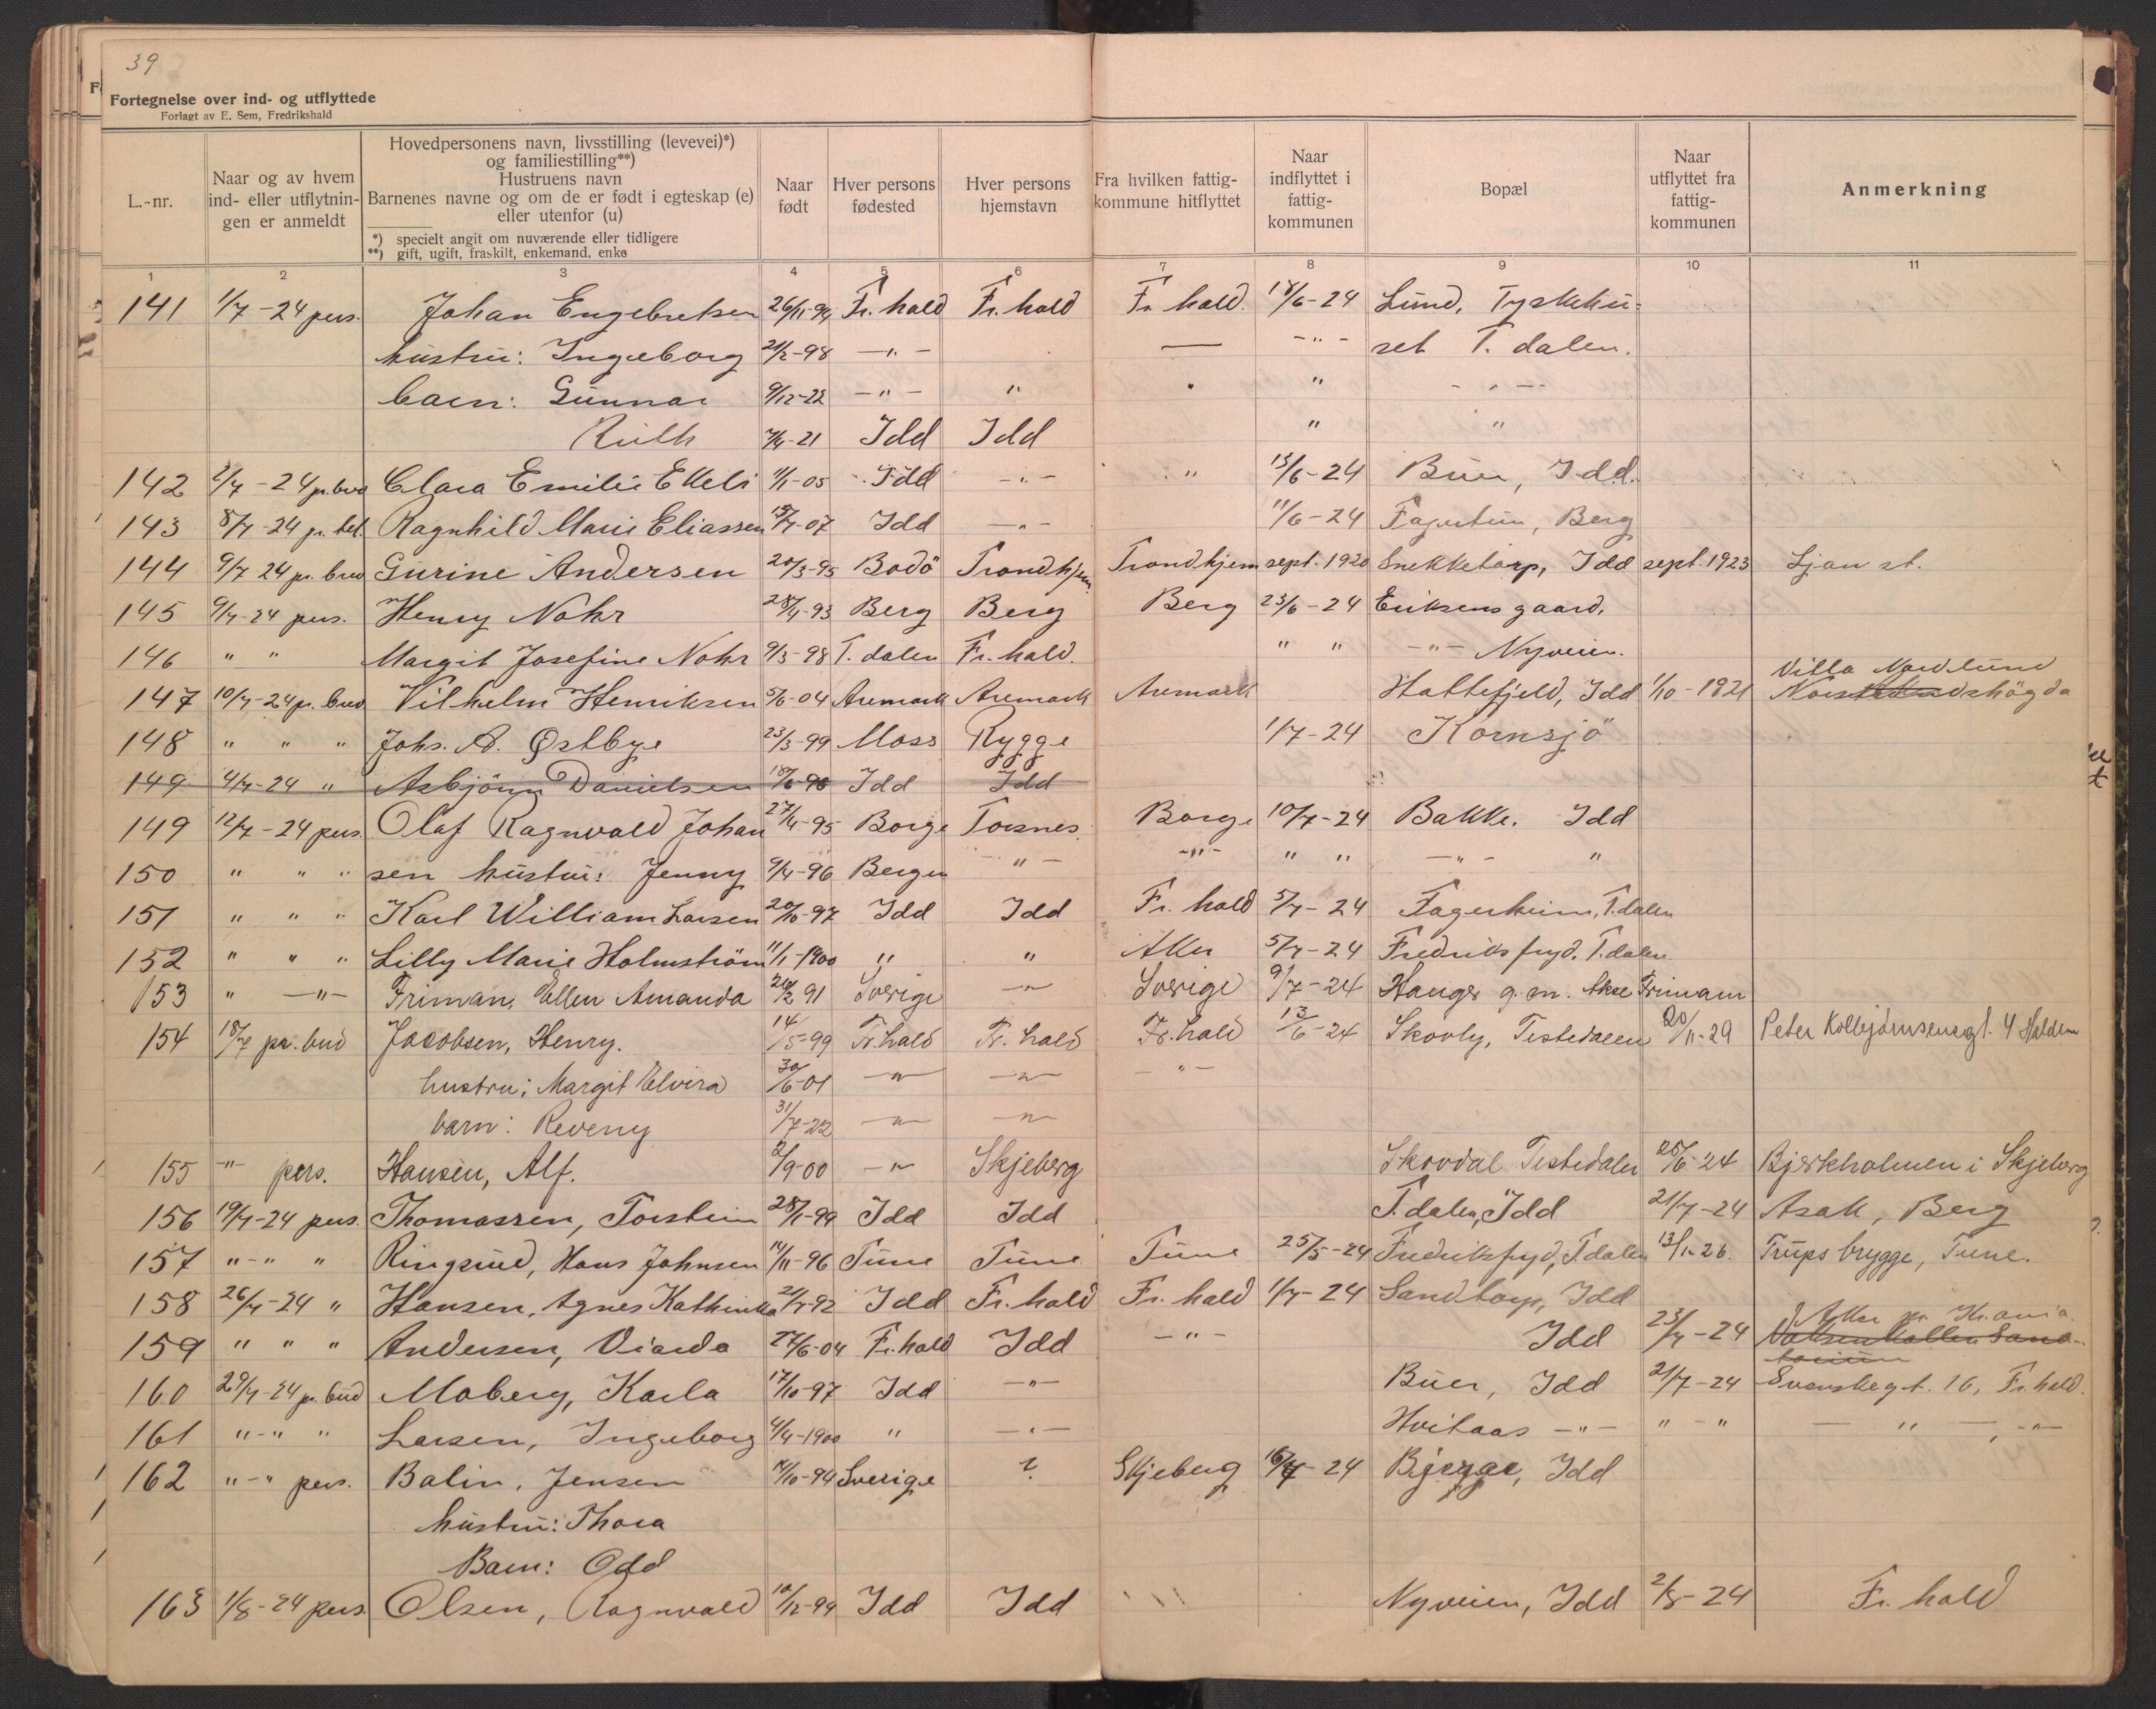 39
Fortegnelse over ind- og utflyttede
Forlagt av E. Sem, Fredrikshald
L.-nr.
Naar og av hvem ind- eller utflytningen er anmeldt
Hovedpersonens navn, livsstilling (levevei)*)
og familiestilling**)
Hustruens navn
Barnenes navne og om de er født i egteskap (e)
eller utenfor (u)
*) specielt angit om nuværende eller tidligere
**) gift, ugift, fraskilt, enkemand, enke
Naar født
Hver persons fødested
Hver persons hjemstavn
Fra hvilken fattigkommune hitflyttet
Naar indflyttet i fattigkommunen
Bopæl
Naar utflyttet fra fattigkommunen
Anmerkning
1 2 3 4 5 6 7 8 9 10 11
141 1/7-24 pers. Johan Engebretsen 26/11-94 Fr. hald Fr. hald Fr. hald. 18/6-24 Lund, Tyskehu-
hustru: Ingeborg 21/2-98 -"- — -"- set T. dalen.
barn: Gunnar 9/12-22 -"- " " " -"-
Ruth 7/4-21 Idd Idd " "
142 2/7-24 pr. bud Clara Emilie Elleli 1/1-05 Idd -"- " 13/6-24 Buer, Idd.
143 8/7-24 pr. tel. Ragnhild Marie Eliassen 18/7-07 Idd -"- 11/6-24 Fagertun, Berg
144 9/7 24 pr. bud Gurine Andersen 20/3-95 Bodö Trondhjem Trondhjem sept. 1920 Snekketorp, Idd sept. 1923 Ljan st.
145 9/7-24 pers. Henry Nohr 28/4-93 Berg Berg Berg 23/6-24 Eriksens gaard,
146 " " Margit Josefine Nohr 9/3-98 T. dalen Fr. hald. " " -"- Nyveien.
Villa Nordlund
147 10/7-24 pr. bud Vilhelm Henriksen 5/6-04 Aremark Aremark Aremark Hattefjeld, Idd 1/10-1921
148 " " " Johs. A. Østbye 23/3-99 Moss Rygge 1/7-24 Kornsjö
149 4/7-24 " Asbjörn Danielsen 18/6-96 Idd Idd
149 12/7-24 pers. Olaf Ragnvald Johan 27/4-95 Borge Torsnes Borge 10/7-24 Bakke. Idd
150 " " " sen hustru: Jenny 9/4-96 Bergen -"- -"- " " -"- "
151 " " " Karl William Larsen 20/10-97 Idd Idd Fr. hald 5/7-24 Fagerheim, T.dalen
152 " " " Lilly Marie Holmström 11/1-1900 " " Aker 5/7-24 Fredriksfryd, T.dalen.
153 " -"- Friman, Ellen Amanda 20/2 91 Sverige -"- Sverige 9/7-24 Hanger g. m. Friman
154 18/7 pr. bud Jacobsen, Henry. 14/5-99 Fr.hald Fr. hald Fr. hald 13/6-24 Skovly, Tistedalen 20/11-29 Peter Kolbjörnsensgt. 4 Halden
hustru: Margit Elvira 30/6-01 -"- -"- -"-
barn: Reveny 31/7-22 -"- -"-
155 -"- pers. Hansen, Alf. 2/9-00 -"- Skjeberg Skovdal Tistedalen 25/6-24 Bjerkholmen i Skjeberg
156 19/7-24 pers. Thomassen, Torstein 28/1-99 Idd Idd T.dalen, Idd 21/7-24 Asak, Berg
157 "-" " Ringsud, Hans Johnsen 14/11-96 Tune Tune Tune 25/5-24 Fredriksfryd, T.dalen 13/1-26. Trupsbrygge, Tune.
158 26/7-24 " Hansen, Agnes Kathinka 21/7-92 Idd Fr. hald Fr. hald 1/7-24 Sandtorp, Idd
Aker pr. Kr.ania.
159 " " " Andersen, Viarda 27/6-04 Fr. hald Idd -"- Idd 23/7-24 Voksenkollen Sana-
torium
160 29/7-24 pr. bud Moberg, Karla 17/10-97 Idd -"- Buer, Idd 21/7-24 Svenskegt. 16, Fr. hald.
161 "-" " Larsen, Ingeborg 4/4-1900 " -"- Hvitaas -"- "-" — " — -"-
162 "-" pers. Balin, Jensen 7/10-94 Sverige ? Skjeberg 16/7-24 Bjergar, Idd
hustru: Thora
Barn: Odd
163 1/8-24 pers Olsen, Ragnvald 10/12-99 Idd Idd Nyveien, Idd 2/8-24 Fr. hald